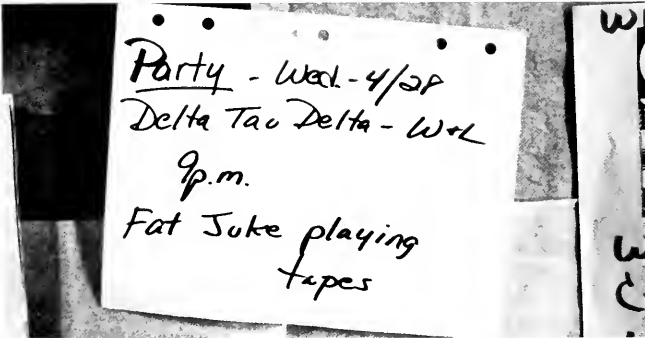 Party - Wed. - 4/28
Delta Tau Delta - W+L
9p.m.
Fat Juke playing
tapes